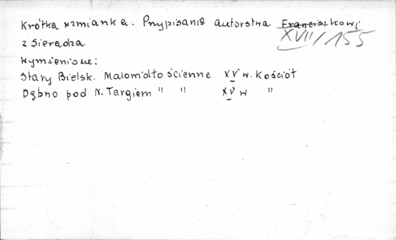 Krótka wzmianka. Przypisanie autorstwa Franciszkowi
z Sieradza XVII/155
Wymienione:
Stary Bielsk. Malowidło ścienne XV w. Kościół
Dębno pod N. Targiem " " XV w "